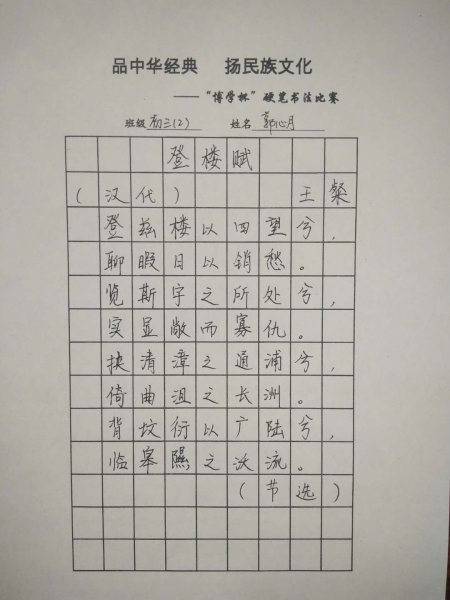 品中华经典 扬民族文化
——“博学杯”硬笔书法比赛
班级 初三(2) 姓名 郭心月
登楼赋
(汉代) 王粲
登兹楼以四望兮,
聊暇日以销愁。
览斯宇之所处兮,
实显敞而寡仇。
挟清漳之通浦兮,
倚曲沮之长洲。
背坟衍以广陆兮,
临皋隰之沃流。
(节选)